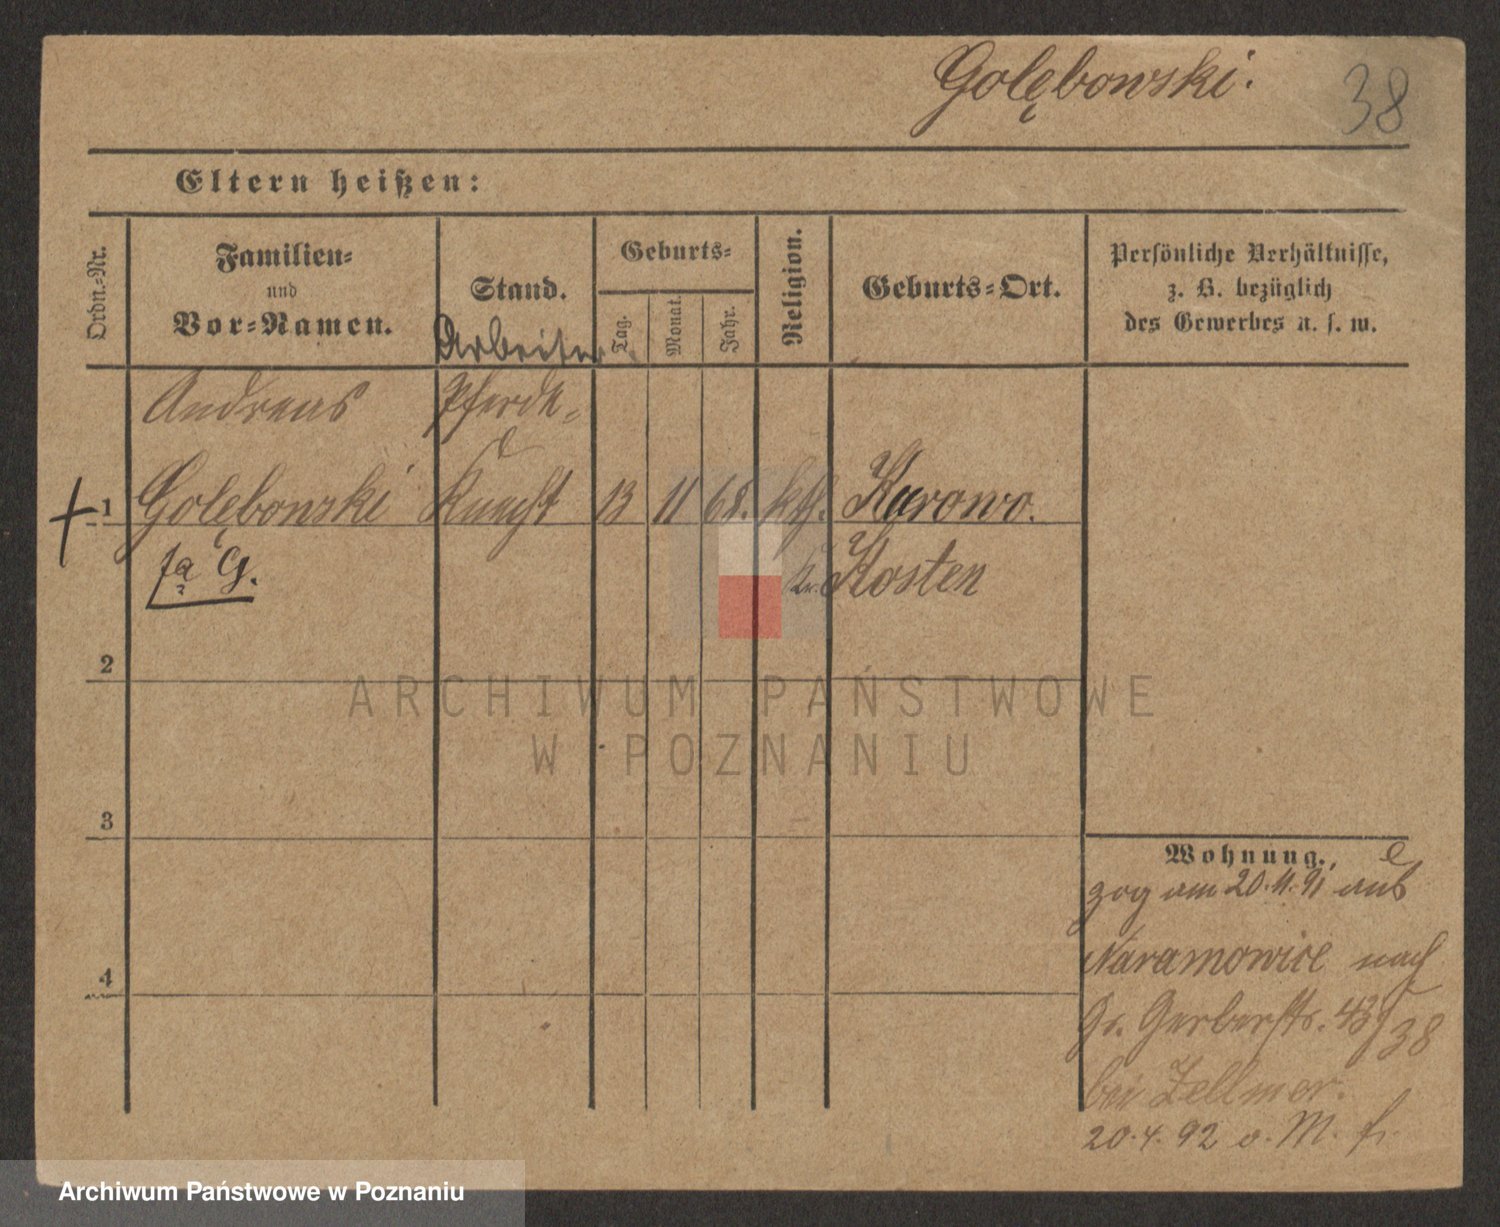 Golębowski.
38
Eltern heißen:
Ordn.-Nr.
Familien-
und
Vor-Namen.
Stand.
Geburts-
Tag.
Monat.
Jahr.
Religion.
Geburts-Ort.
Persönliche Verhältnisse,
z. B. bezüglich
des Gewerbes u. s. w.
Arbeiter
Andreas Pferde-
1 Golębowski Knecht 13 11 68. kth. Karowo.
G. Kr. Kosten
2
ARCHIWUM PAŃSTWOWE
W POZNANIU
3
Wohnung.
zog am 20.11.91 aus
Naramowice nach
Gr. Gerberstr. 43/38
bei Zellmer.
20.4.92 o. M. f.
4
Archiwum Państwowe w Poznaniu